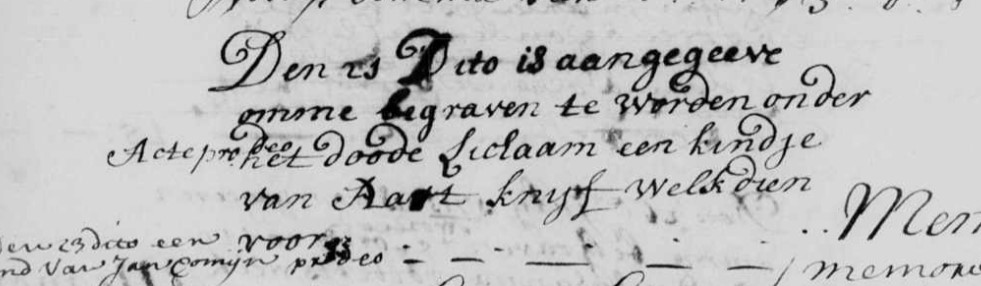 Den 21 Dito is aangegeeve
omme begraven te worden onder
Acte pro deo het doode Liclaam een kindje
van Aart knijf welk dien
voor Mem
den 23 dito een
nd Van Jan Comijn pro deo — — — — — / memorie